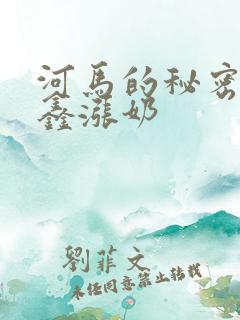 河馬的秘密
鑫漲奶
劉菲文
未经同意禁止转载